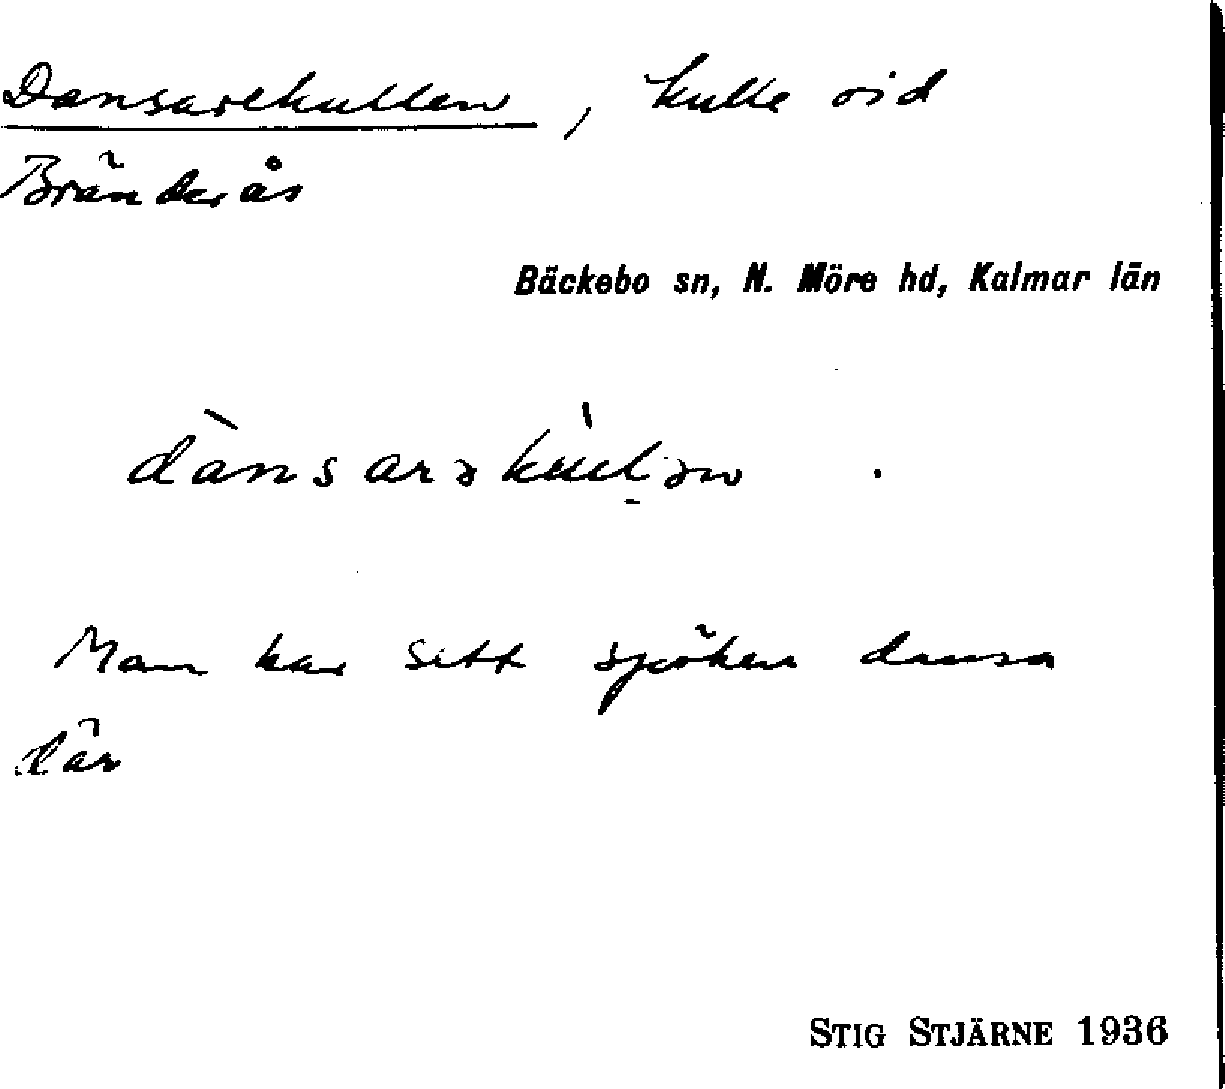 Dansarekullen, kulle vid
Bränderås
Bäckebo sn, N. Möre hd, Kalmar län
dànsarəkùl̠ən.
Man har sett spöken dansa
där
STIG STJÄRNE 1936